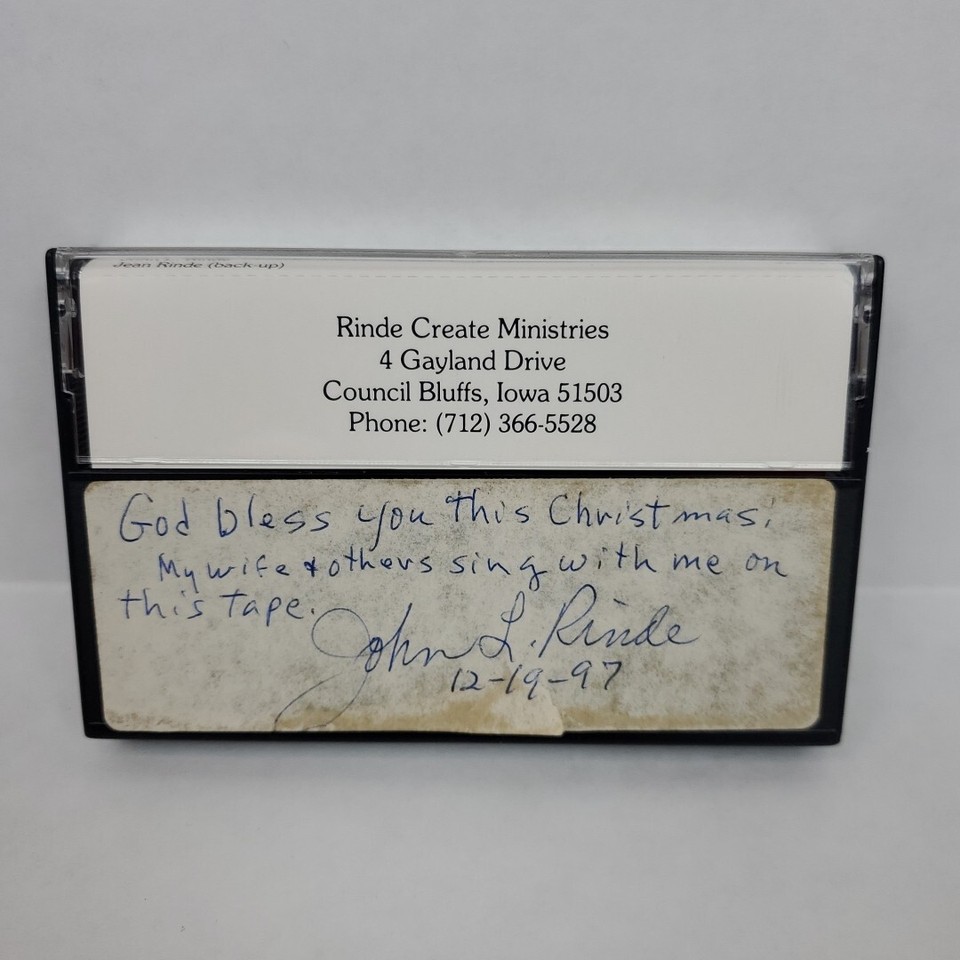 Jean Rinde (back-up)
Rinde Create Ministries
4 Gayland Drive
Council Bluffs, Iowa 51503
Phone: (712) 366-5528
God bless you this Christmas.
My wife & others sing with me on
this tape.
John L. Rinde
12-19-97